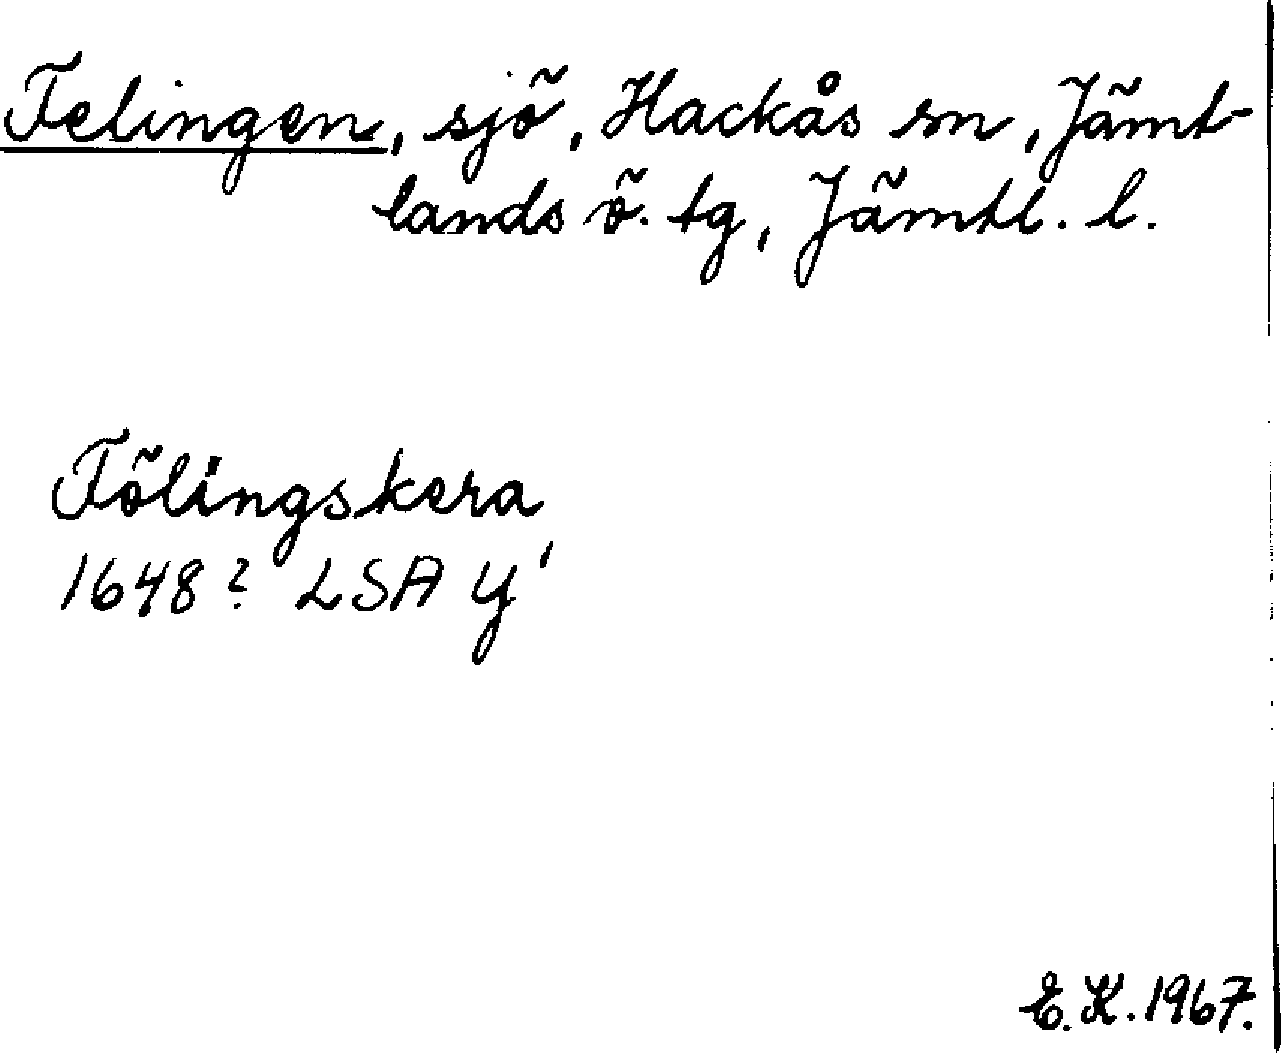 Felingen, sjö, Hackås sn, Jämt-
lands ö. tg, Jämtl. l.
Fölingskera
1648? LSA Y'
E.K. 1967.